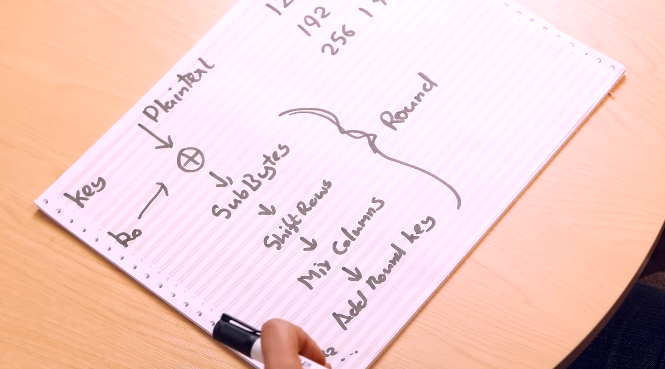 192
256
Plaintext
key
k₀
⊕
SubBytes
Shift Rows
Mix Columns
Add Round key
Round